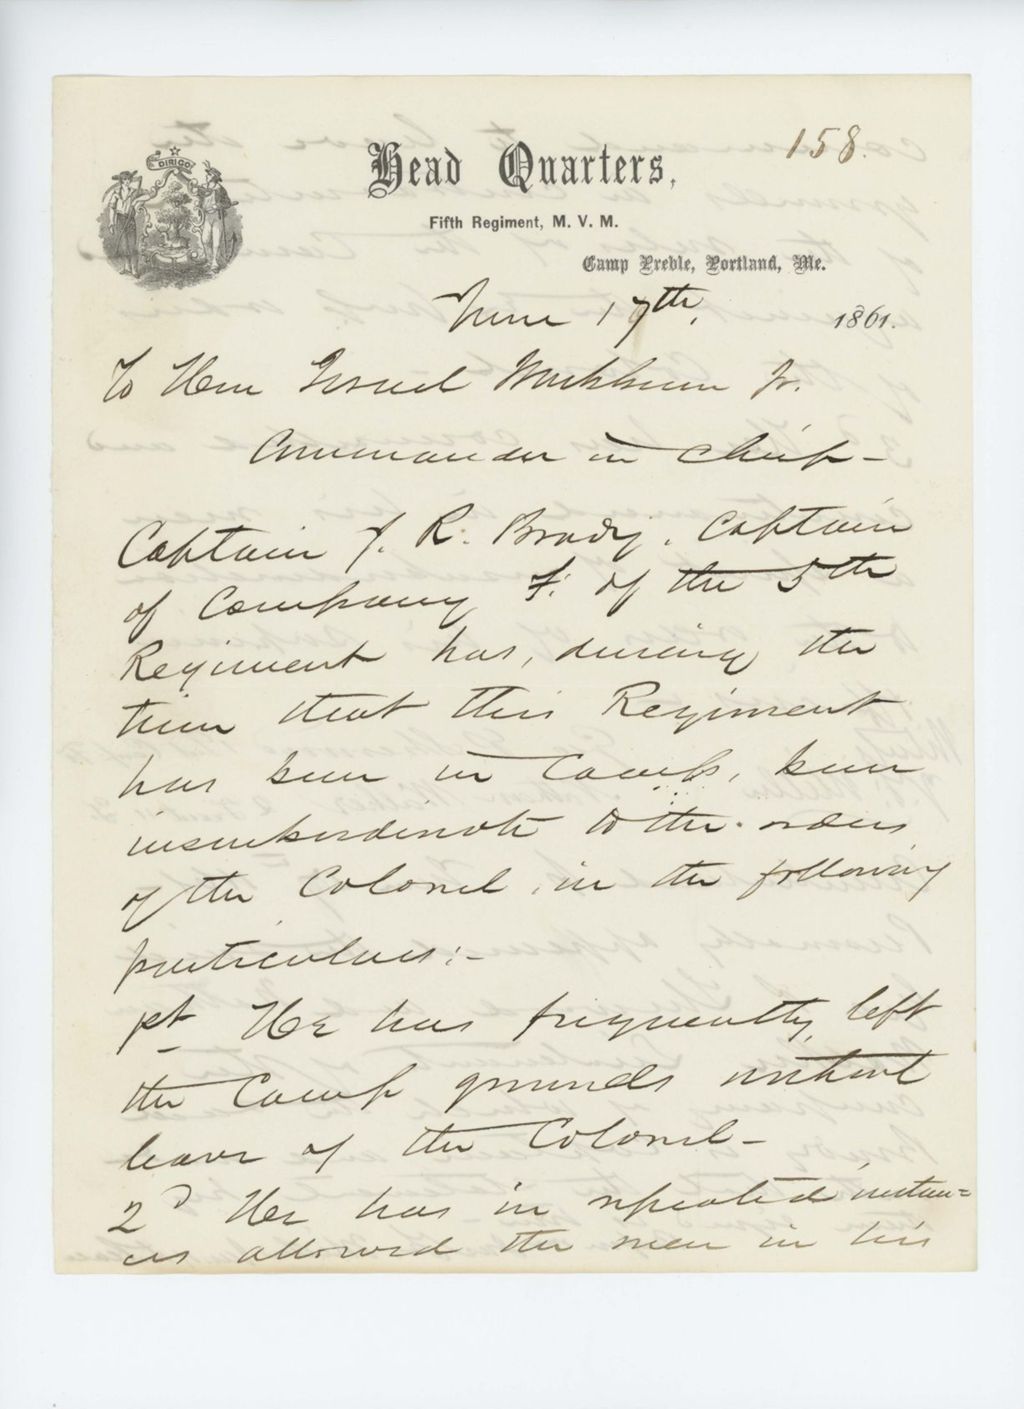 158.
DIRIGO
Head Quarters,
Fifth Regiment, M. V. M.
Camp Preble, Portland, Me.
June 17th, 1861.
To Hon Israel Washburn Jr.
Commander in Chief-
Captain J. R. Brady, Captain
of Company F. of the 5th
Regiment has, during the
time that this Regiment
has been in Camp, been
insubordinate to the orders
of the Colonel, in the following
particulars:-
1st He has frequently left
the Camp grounds without
leave of the Colonel-
2d He has in repeated instan=
ces allowed the men in his